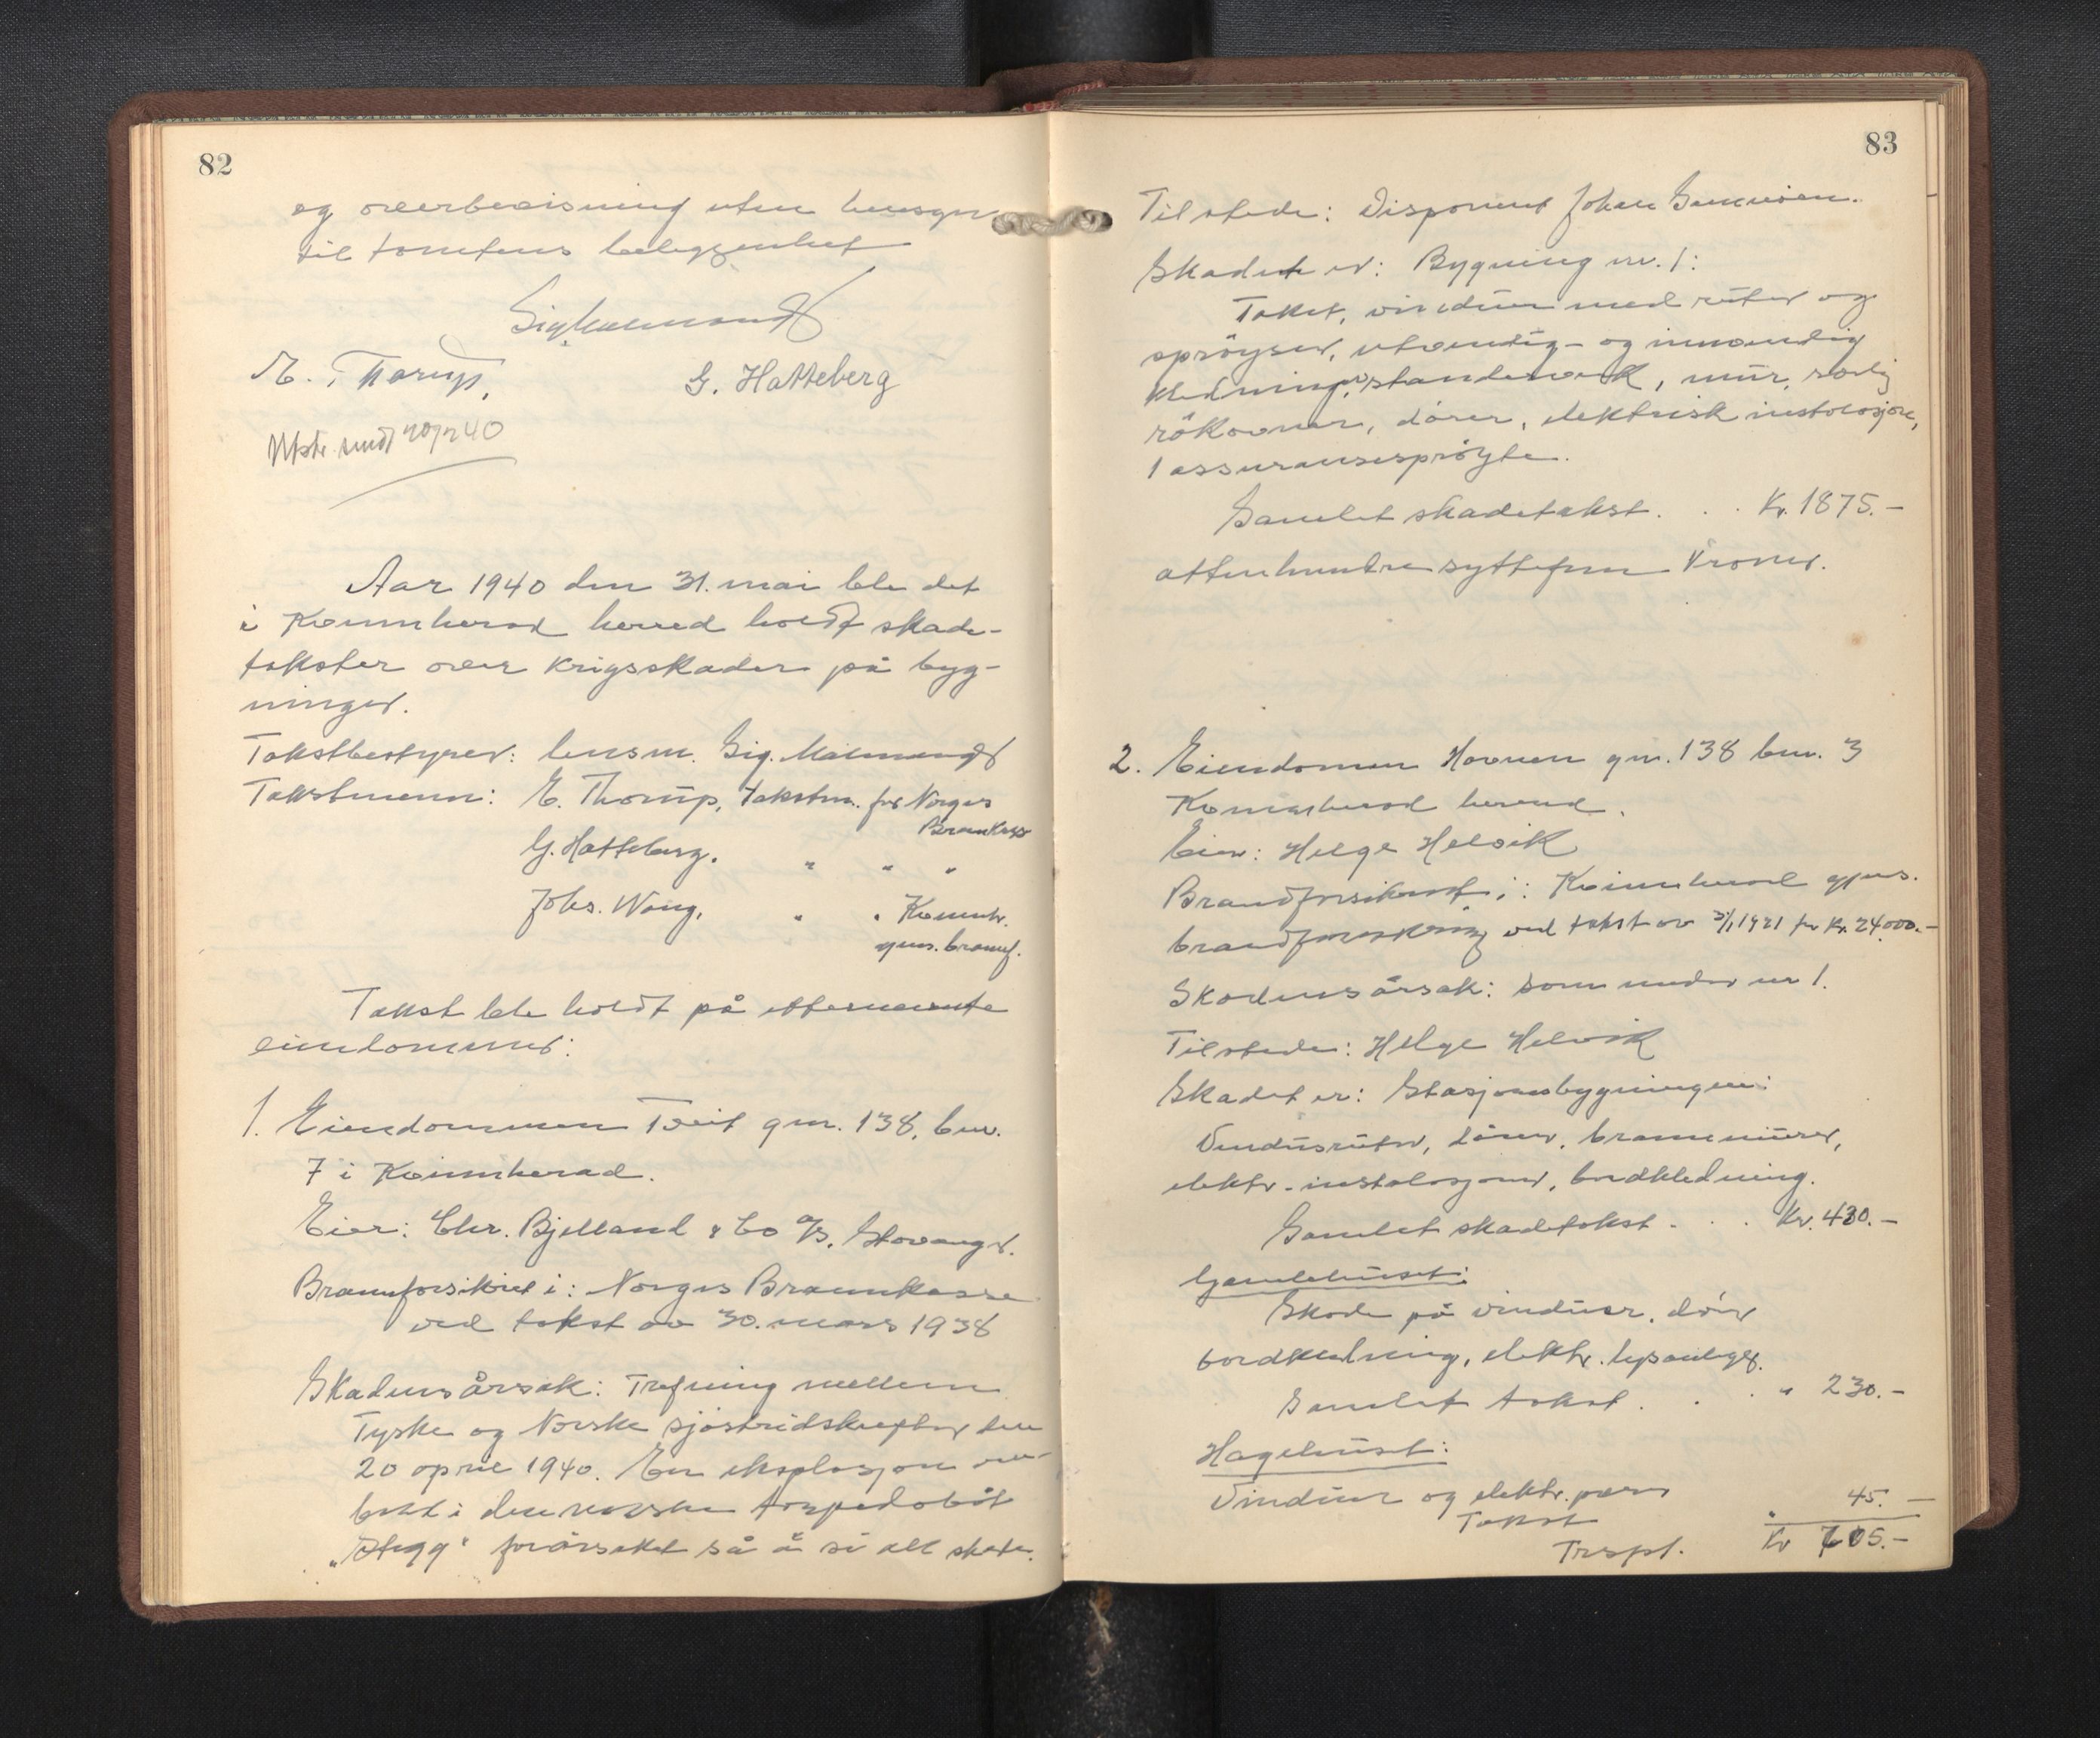 82
og overbevisning uten hensyn
til tomtens beliggenhet
Sig Malmandt
E. Thorup,
G. Hatteberg
Utskr. sendt 20/7 40
Aar 1940 den 31. mai ble det
i Kvinnherad herred holdt skade-
takster over krigsskader på byg-
ninger.
Takstbestyrer: lensm. Sig. Malmandt
Takstmenn: E. Thorup, takstm. for Norges
Brankasse
G. Hatteberg. " " "
Johs. Wang, " " Kvinnh.
gjens. brannf.
Takst ble holdt på etternevnte
eiendommer:
1. Eiendommen Tveit gnr. 138, bnr.
7 i Kvinnherad.
Eier: Chr. Bjelland & Co A/S, Stavanger.
Brannforsikret i: Norges Brannkasse
ved takst av 30. mars 1938
Skadens årsak: Trefning mellem
Tyske og Norske sjöstridskrefter den
20 april 1940. En eksplosjon om-
bord i den norske torpedobåt
"Stegg" forårsaket så å si all skade.
83
Tilstede: Disponent Johan
Skadet er: Bygning nr. 1:
Taket, vinduer med ruter og
spröyser, utvendig- og innvendig
kledning, standerverk, mur, særlig
rökovner, dörer, elektrisk instalasjon,
1 assuransespröyte.
Samlet skadetakst. . . Kr. 1875.-
attenhundresyttifem kroner.
2. Eiendommen Hovnen gnr. 138 bnr. 3
Kvinnherad herred.
Eier: Helge Helvik
Brandforsikret i: Kvinnherad gjens.
brandforsikring ved takst av 3/1 1921 for Kr. 24000.-
Skadens årsak: som under nr 1.
Tilstede: Helge Helvik
Skadet er: Stasjonsbygningen:
Vindusruter, dörer, brannmurer,
elektr. instalasjoner, bordkledning.
Samlet skadetakst . . . Kr. 430.-
Gamlehuset:
Skade på vinduer, dörer
bordkledning, elektr. lysanlegg.
Samlet takst. . . " 230.-
Hagehuset:
Vinduer og elektr. pærer
Takst " 45.-
Trspt. Kr 705.-